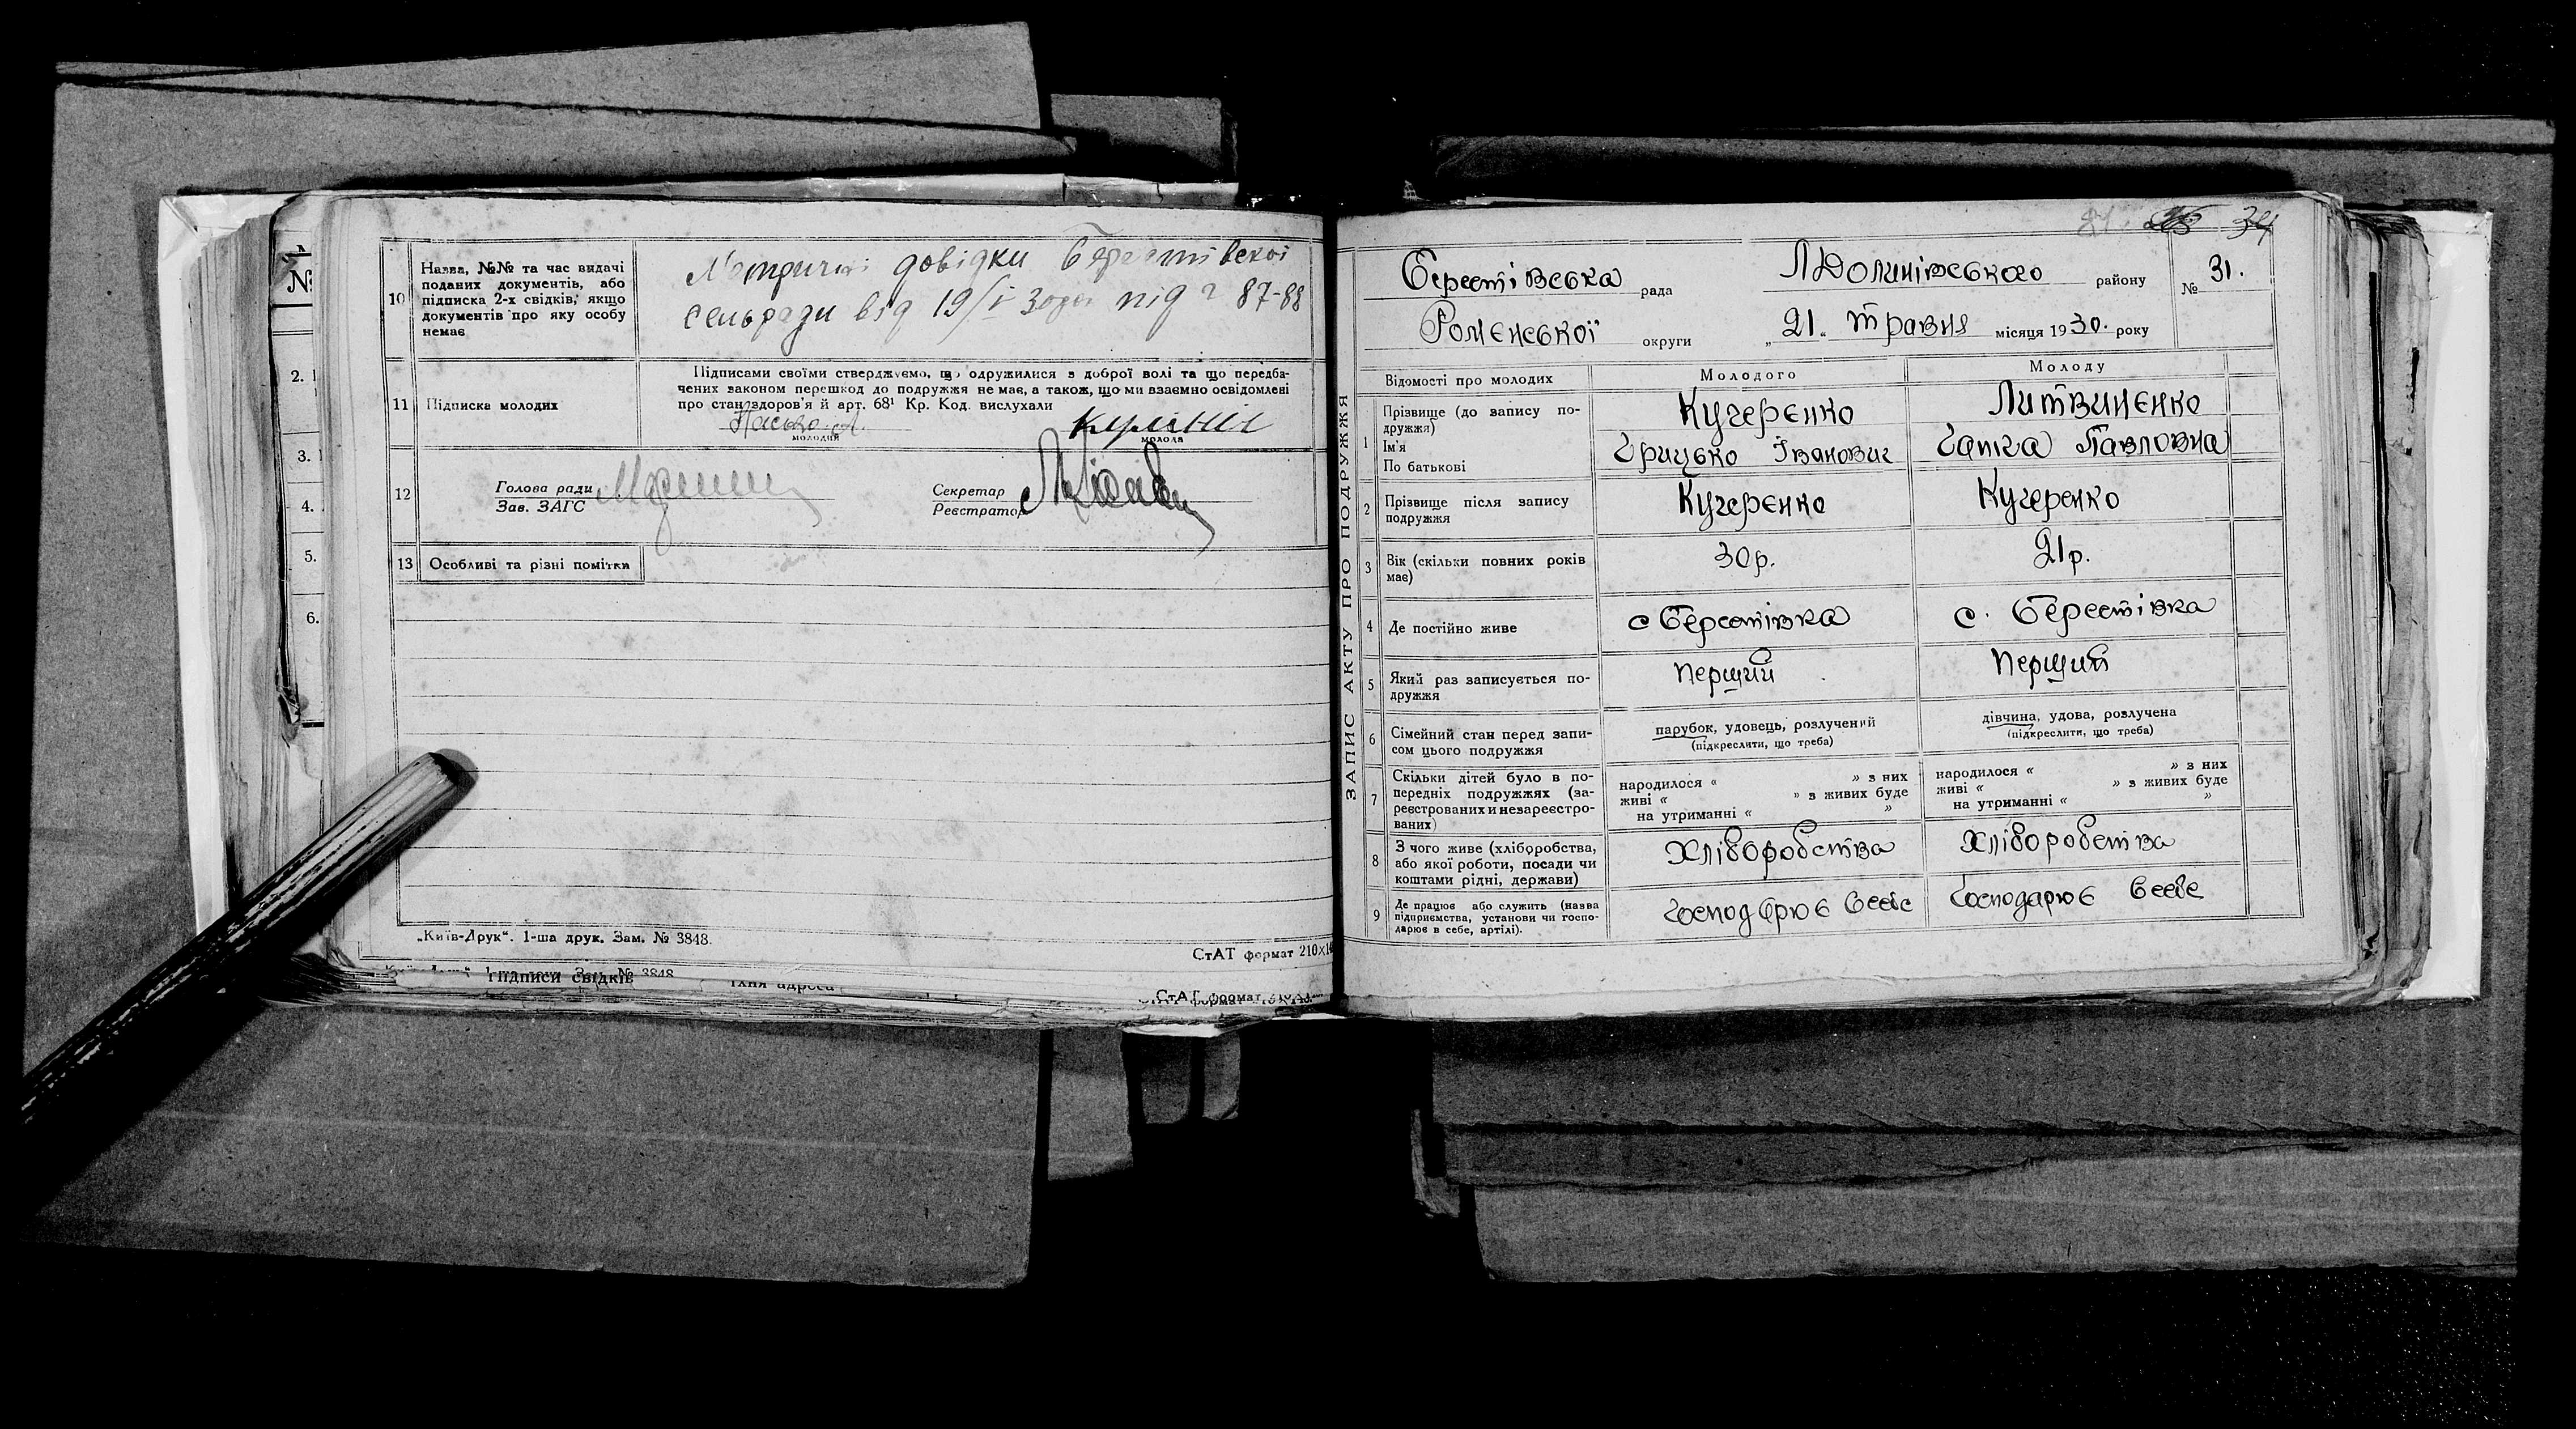 10 Назва, №№ та час видачі
поданих документів, або
підписка 2-х свідків, якщо
документів про яку особу
немає
Метричні довідки Берестівскої
сельради від 19/I 30 року під 87-88
11 Підписка молодих
Підписами своїми стверджуємо, що одружилися з доброї волі та що передба-
чених законом перешкод до подружжя не має, а також, що ми взаємно освідомлені
про стан здоров'я й арт. 68¹ Кр. Код. вислухали
молодий
молода
12 Голова ради
Зав. ЗАГС
Секретар
Реєстратор
13 Особливі та різні помітки
„Київ-Друк“. 1-ша друк. Зам. № 3848.
СтАТ формат 210×1
Зам. № 3848
Підписи свідків
їхня адреса
СтАТ формат
№
2.
3.
4.
5.
6.
34
Берестівська рада
Л Долинівського району
№ 31.
Роменської округи
„21“ травня місяця 1930. року
ЗАПИС АКТУ ПРО ПОДРУЖЖЯ
Відомості про молодих
Молодого
Молоду
1 Прізвище (до запису по-
дружжя)
Ім'я
По батькові
Кучеренко
Грицько Іванович
Литвиненко
Гапка Павловна
2 Прізвище після запису
подружжя
Кучеренко
Кучеренко
3 Вік (скільки повних років
має)
30 р.
21 р.
4 Де постійно живе
с Берестівка
с. Берестівка
5 Який раз записується по-
дружжя
Перший
Перший
6 Сімейний стан перед запи-
сом цього подружжя
парубок, удовець, розлучений
(підкреслити, що треба)
дівчина, удова, розлучена
(підкреслити, що треба)
7 Скільки дітей було в по-
передніх подружжях (за-
реєстрованих и незареєстро-
ваних)
народилося « » з них
живі « » з живих буде
на утриманні « »
народилося « » з них
живі « » з живих буде
на утриманні « »
8 З чого живе (хліборобства,
або якої роботи, посади чи
коштами рідні, держави)
Хліборобства
Хліборобства
9 Де працює або служить (назва
підприємства, установи чи госпо-
дарює в себе, артілі).
Господарює всебе
Господарює всебе